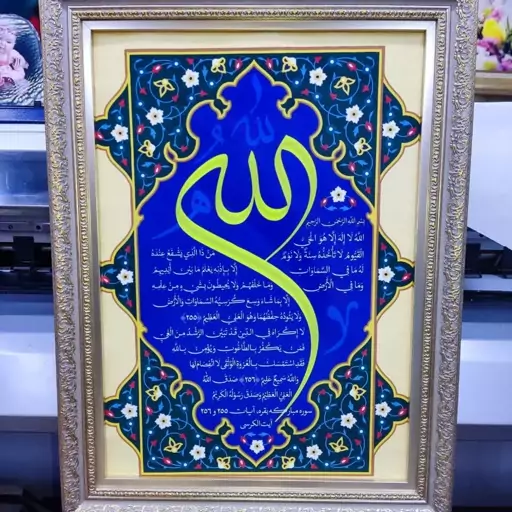 الله
بسم الله الرحمن الرحیم
الله لا إله إلا هو الحی
القیوم لا تأخذه سنة ولا نوم
له ما فی السماوات
وما فی الأرض
من ذا الذی یشفع عنده
إلا بإذنه یعلم ما بین أیدیهم
وما خلفهم ولا یحیطون بشیء من علمه
إلا بما شاء وسع کرسیه السماوات والأرض
ولا یئوده حفظهما وهو العلی العظیم ﴿۲۵۵﴾
لا إکراه فی الدین قد تبین الرشد من الغی
فمن یکفر بالطاغوت ویؤمن بالله
فقد استمسک بالعروة الوثقی لا انفصام لها
والله سمیع علیم ﴿۲۵۶﴾ صدق الله
العلی العظیم وصدق رسوله الکریم
سوره مبارکه بقره، آیات ۲۵۵ و ۲۵۶
آیت الکرسی